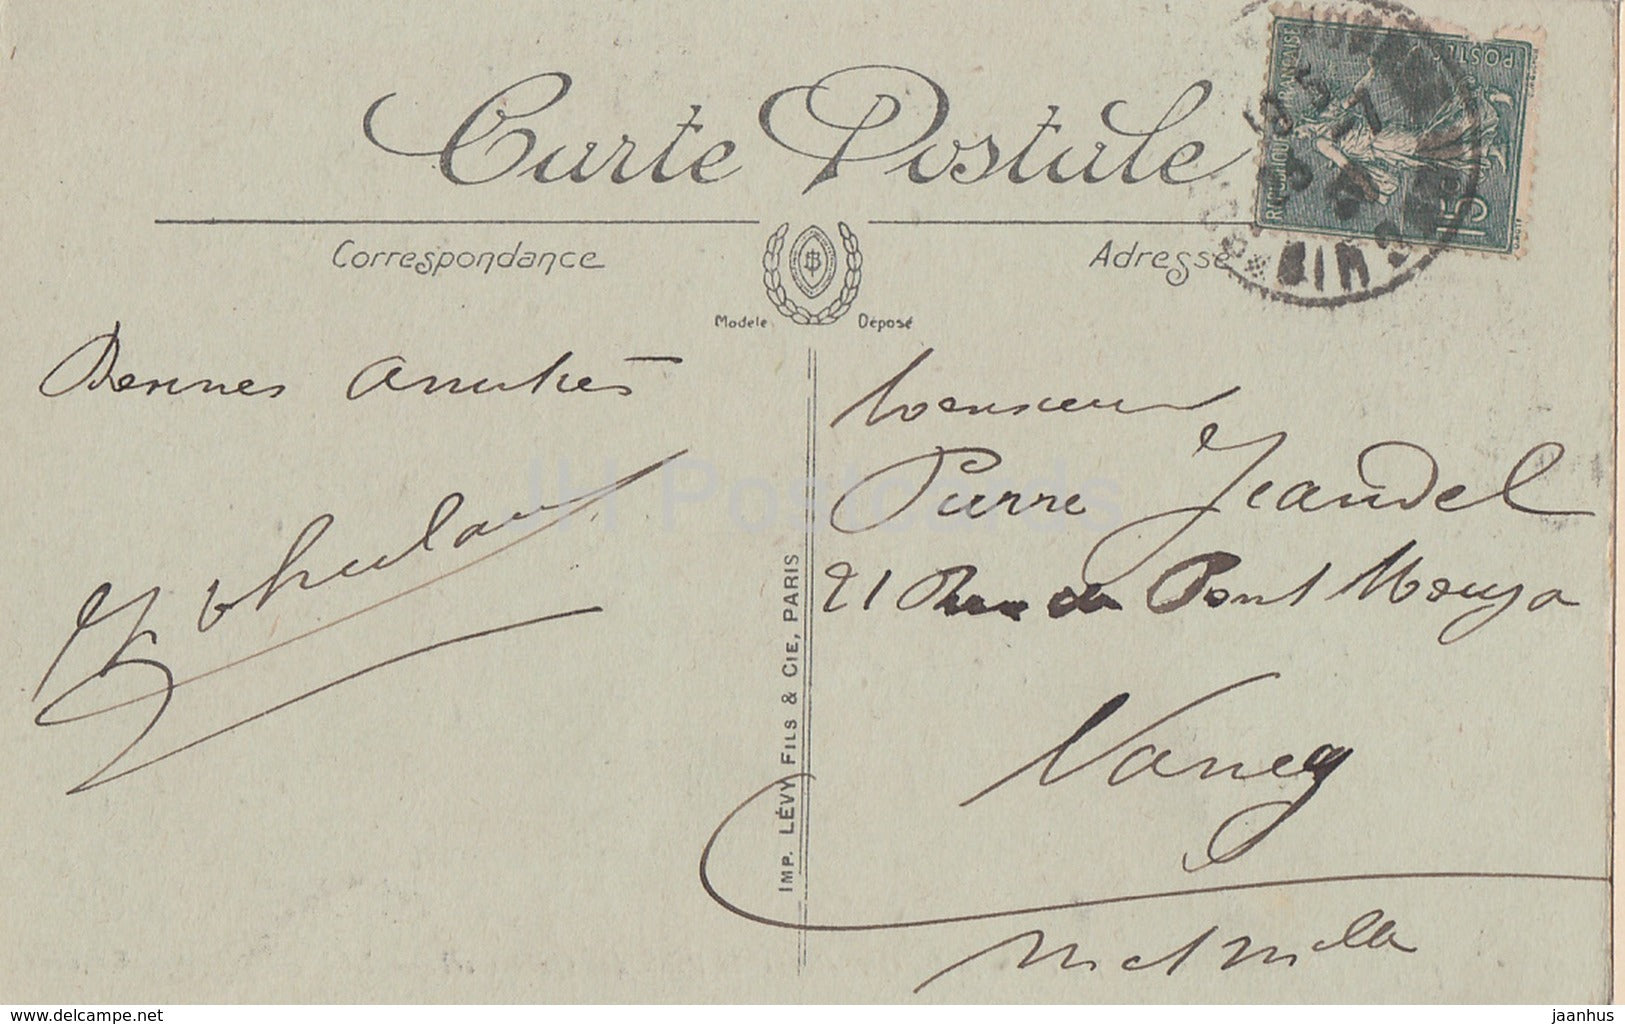 Carte Postale
Correspondance
Adresse
Modèle Déposé
RÉPUBLIQUE FRANÇAISE
POSTES
15c
Bonnes amitiés
Monsieur
Pierre Jeandel
21 Rue du Pont Mouja
Nancy
M et Melle
IMP. LÉVY FILS & CIE, PARIS
JH Postcards
www.delcampe.net
jaanhus